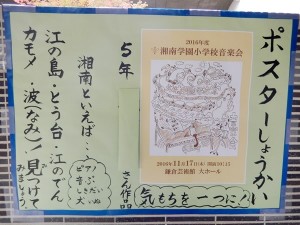 ポスターしょうかい
2016年度
湘南学園小学校音楽会
2016年11月17日(木)
鎌倉芸術館 大ホール
気もちを一つに!
5年
さん作品
湘南といえば・・・
江の島・とう台・江のでん
カモメ・波(なみ)!見つけて
みましょう。